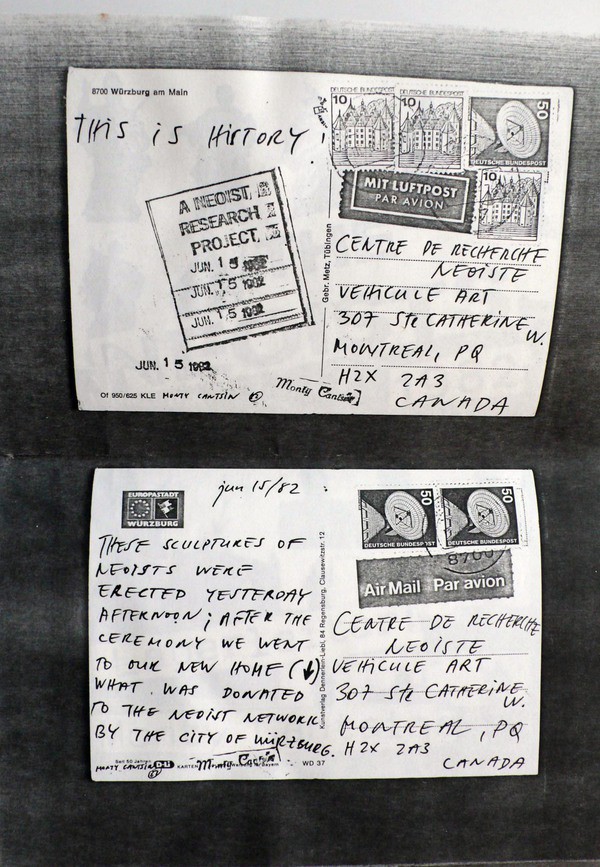 8700 Würzburg am Main
THIS IS HISTORY!
A NEOIST
RESEARCH
PROJECT.
JUN. 15 1982
JUN. 15 1982
JUN. 15 1982
JUN. 15 1982
Of 950/625 KLE MONTY CANTSIN
Monty Cantsin
Gebr. Metz, Tübingen
DEUTSCHE BUNDESPOST
10
DEUTSCHE BUNDESPOST
10
50
DEUTSCHE BUNDESPOST
10
MIT LUFTPOST
PAR AVION
CENTRE DE RECHERCHE
NEOÏSTE
VEHICULE ART
307 Ste CATHERINE W.
MONTREAL, PQ
H2X 2A3
CANADA
EUROPASTADT
WÜRZBURG
jun 15/82
THESE SCULPTURES OF
NEOISTS WERE
ERECTED YESTERDAY
AFTERNOON; AFTER THE
CEREMONY WE WENT
TO OUR NEW HOME (↓)
WHAT WAS DONATED
TO THE NEOIST NETWORK
BY THE CITY OF WÜRZBURG.
Seit 50 Jahren
MONTY CANTSIN
KARTEN
Monty Cantsin
in Bayern
WD 37
Kunstverlag Dennerlein-Liebl, 84 Regensburg, Clausewitzstr. 12
50
DEUTSCHE BUNDESPOST
50
DEUTSCHE BUNDESPOST
8700
Air Mail Par avion
CENTRE DE RECHERCHE
NEOÏSTE
VEHICULE ART
307 Ste CATHERINE W.
MONTREAL, PQ
H2X 2A3
CANADA